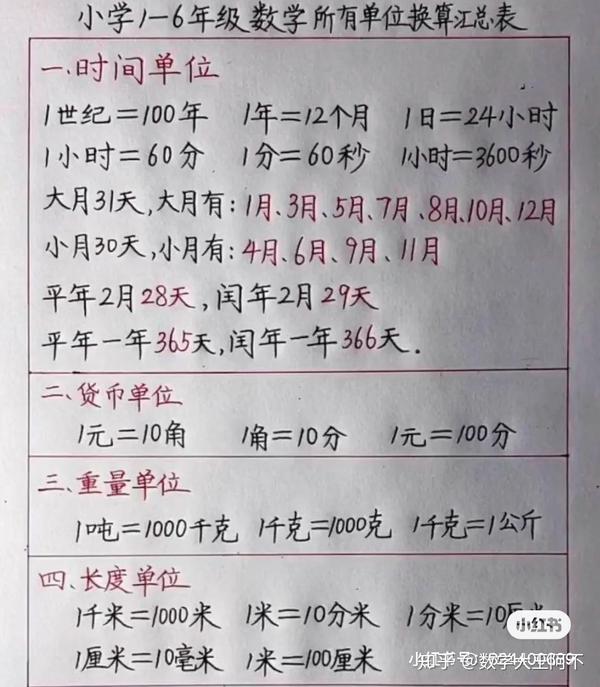 小学1-6年级数学所有单位换算汇总表
一.时间单位
1世纪=100年 1年=12个月 1日=24小时
1小时=60分 1分=60秒 1小时=3600秒
大月31天,大月有:1月、3月、5月、7月、8月、10月、12月
小月30天,小月有:4月、6月、9月、11月
平年2月28天,闰年2月29天
平年一年365天,闰年一年366天.
二、货币单位
1元=10角 1角=10分 1元=100分
三、重量单位
1吨=1000千克 1千克=1000克 1千克=1公斤
四、长度单位
1千米=1000米 1米=10分米 1分米=10厘米
小红书
1厘米=10毫米 1米=100厘米
小红书号:
知乎 @数学大王问不